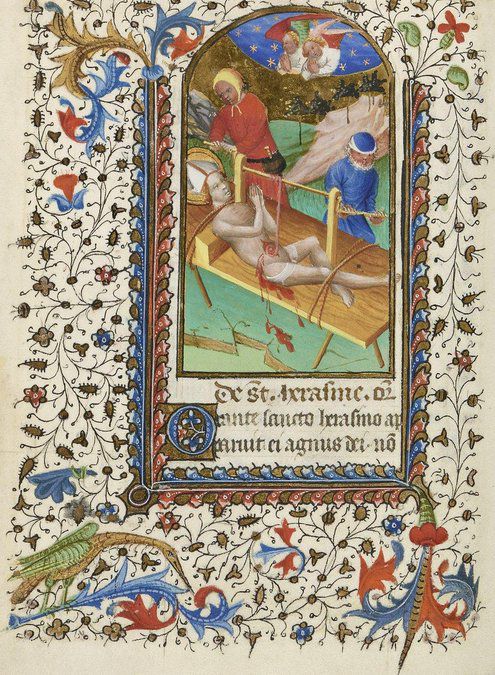 De St. herasme. Or
Orante sancto herasmo ap
paruit ei agnus dei. nō